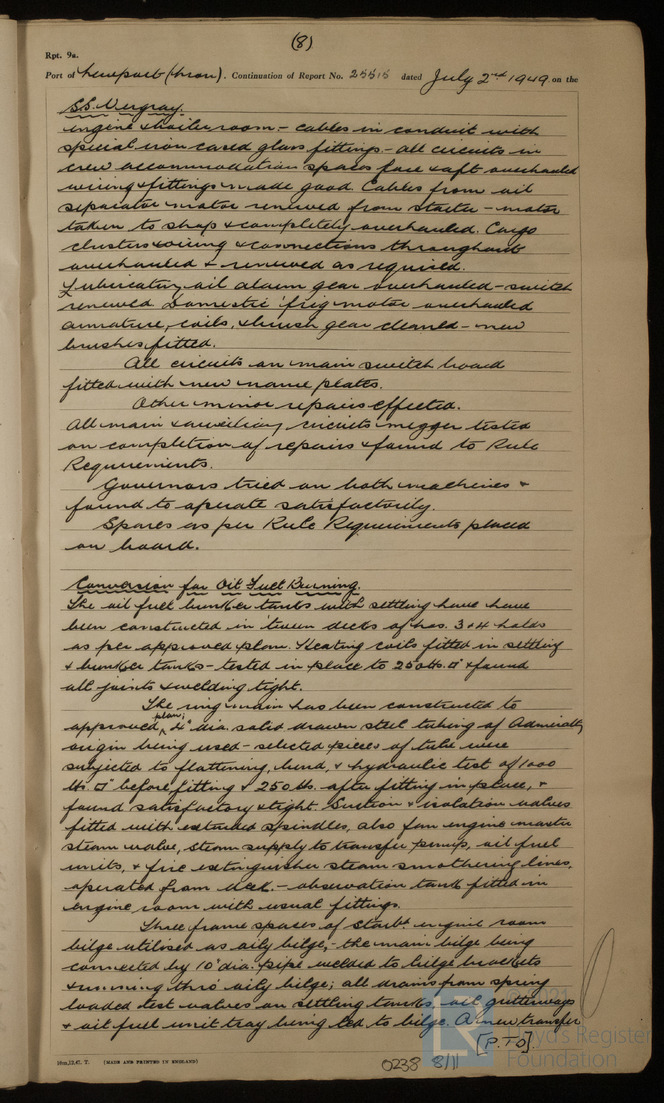 (8)
Rpt. 9a.
Port of Newport (Mon). Continuation of Report No. 25515 dated July 2nd 1949 on the
S.S. Vergray.
engine & boiler room - cables in conduit with
special iron cased glass fittings - all circuits in
crew accommodation spaces fore & aft overhauled
wiring & fittings made good. Cables from oil
separator motor renewed from starter - motor
taken to shop & completely overhauled. Cargo
clusters wiring & connections throughout
overhauled & renewed as required.
Lubricating oil alarm gear overhauled - switch
renewed. Domestic 'frig motor overhauled
armature, coils, & brush gear cleaned - new
brushes fitted.
All circuits on main switch board
fitted with new name plates.
Other minor repairs effected.
All main & auxiliary circuits megger tested
on completion of repairs & found to Rule
Requirements.
Governors tried on both machines &
found to operate satisfactorily.
Spares as per Rule Requirements placed
on board.
Conversion for Oil Fuel Burning.
The oil fuel bunker tanks with settling have have
been constructed in 'tween decks of nos. 3 & 4 holds
as per approved plan. Heating coils fitted in settling
& bunker tanks - tested in place to 250 lbs. □" & found
all joints & welding tight.
The ring main has been constructed to
approved plan; dia. solid drawn steel tubing of Admiralty
origin being used - selected pieces of tube were
subjected to flattening, bend, & hydraulic test of 1000
lbs □" before fitting & 250 lbs. after fitting in place, &
found satisfactory & tight. Suction & isolation valves
fitted with extended spindles, also fan engine master
steam valve, steam supply to transfer pump, oil fuel
units, & fire extinguisher steam smothering lines,
operated from deck. - observation tank fitted in
engine room with usual fittings.
Three frame spaces of starbd. engine room
bilge utilised as oily bilge, - the main bilge being
connected by 10" dia. pipe welded to bilge brackets
& running thro' oily bilge; all drains from spring
loaded test valves on settling tanks, all gutterways
& oil fuel unit tray being led to bilge. A new transfer
[P.T.O].
10m,12.47. T. (MADE AND PRINTED IN ENGLAND)
0238 8/11
Lloyd's Register
Foundation